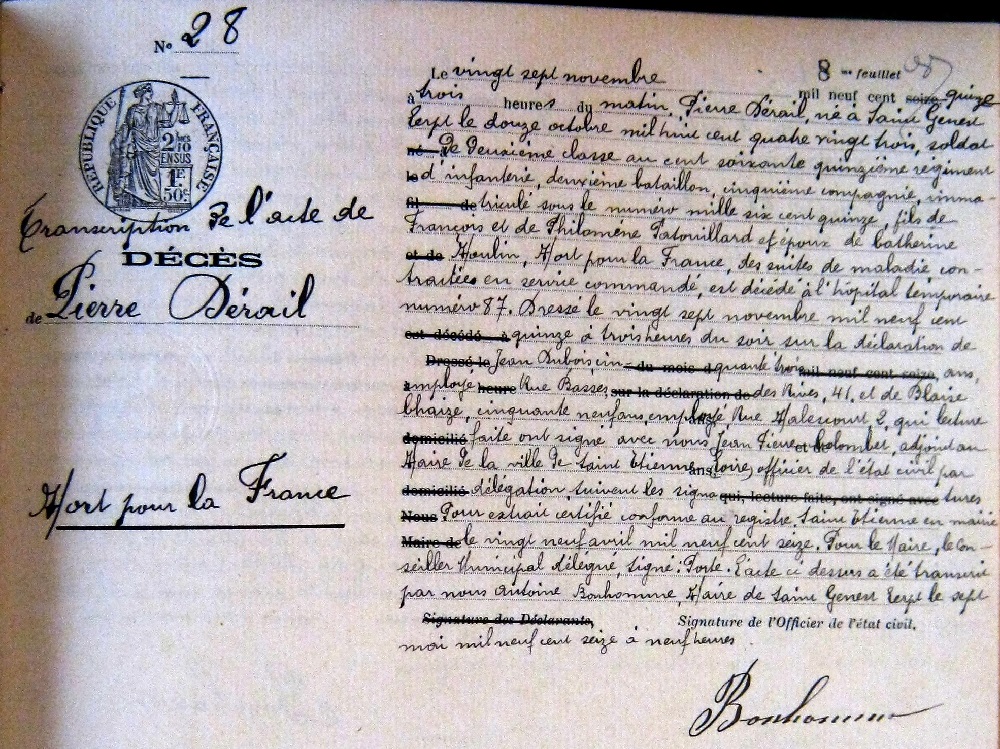 N° 28
RÉPUBLIQUE FRANÇAISE
2/10
EN SUS
1F.
50c.
Transcription de l'acte de
DÉCÈS
de Pierre Dérail
Mort pour la France
8 me feuillet
Le vingt sept novembre mil neuf cent seize quinze
à trois heures du matin, Pierre Dérail, né à Saint Genest
Lerpt le douze octobre mil huit cent quatre vingt trois, soldat
né à De deuxième classe au cent soixante quinzième régiment
le d'infanterie, deuxième bataillon, cinquième compagnie, imma-
fil de triculé sous le numéro mille six cent quinze, fils de
François et de Philomène Patouillard et époux de Catherine
et de Moulin, Mort pour la France, des suites de maladie con-
tractées en service commandé, est décédé à l'hôpital temporaire
numéro 87. Dressé le vingt sept novembre mil neuf cent
est décédé à quinze à trois heures du soir sur la déclaration de
Dressé le Jean Dubois, cin- du mois d quante trois mil neuf cent seize ans,
employé heure Rue Basses sur la déclaration de des Rives, 41, et de Blaise
cinquante neuf ans, employé ans, Rue Malescourt 2, qui lecture
domicilié faite ont signé avec nous Jean Pierre et de Colombet, adjoint au
Maire de la ville de Saint Etienne ans, Loire, officier de l'état civil par
domicilié délégation, suivent les signa qui, lecture faite, ont signé avec tures
Nous Pour extrait certifié conforme au registre, Saint Etienne en mairie
Maire de le vingt neuf avril mil neuf cent seize. Pour le Maire, le Con-
seiller Municipal délégué, signé: Porte. L'acte ci dessus a été transcrit
par nous Antoine Bonhomme, Maire de Saint Genest Lerpt le sept
Signature des Déclarants, Signature de l'Officier de l'état civil,
mai mil neuf cent seize à neuf heures
Bonhomme